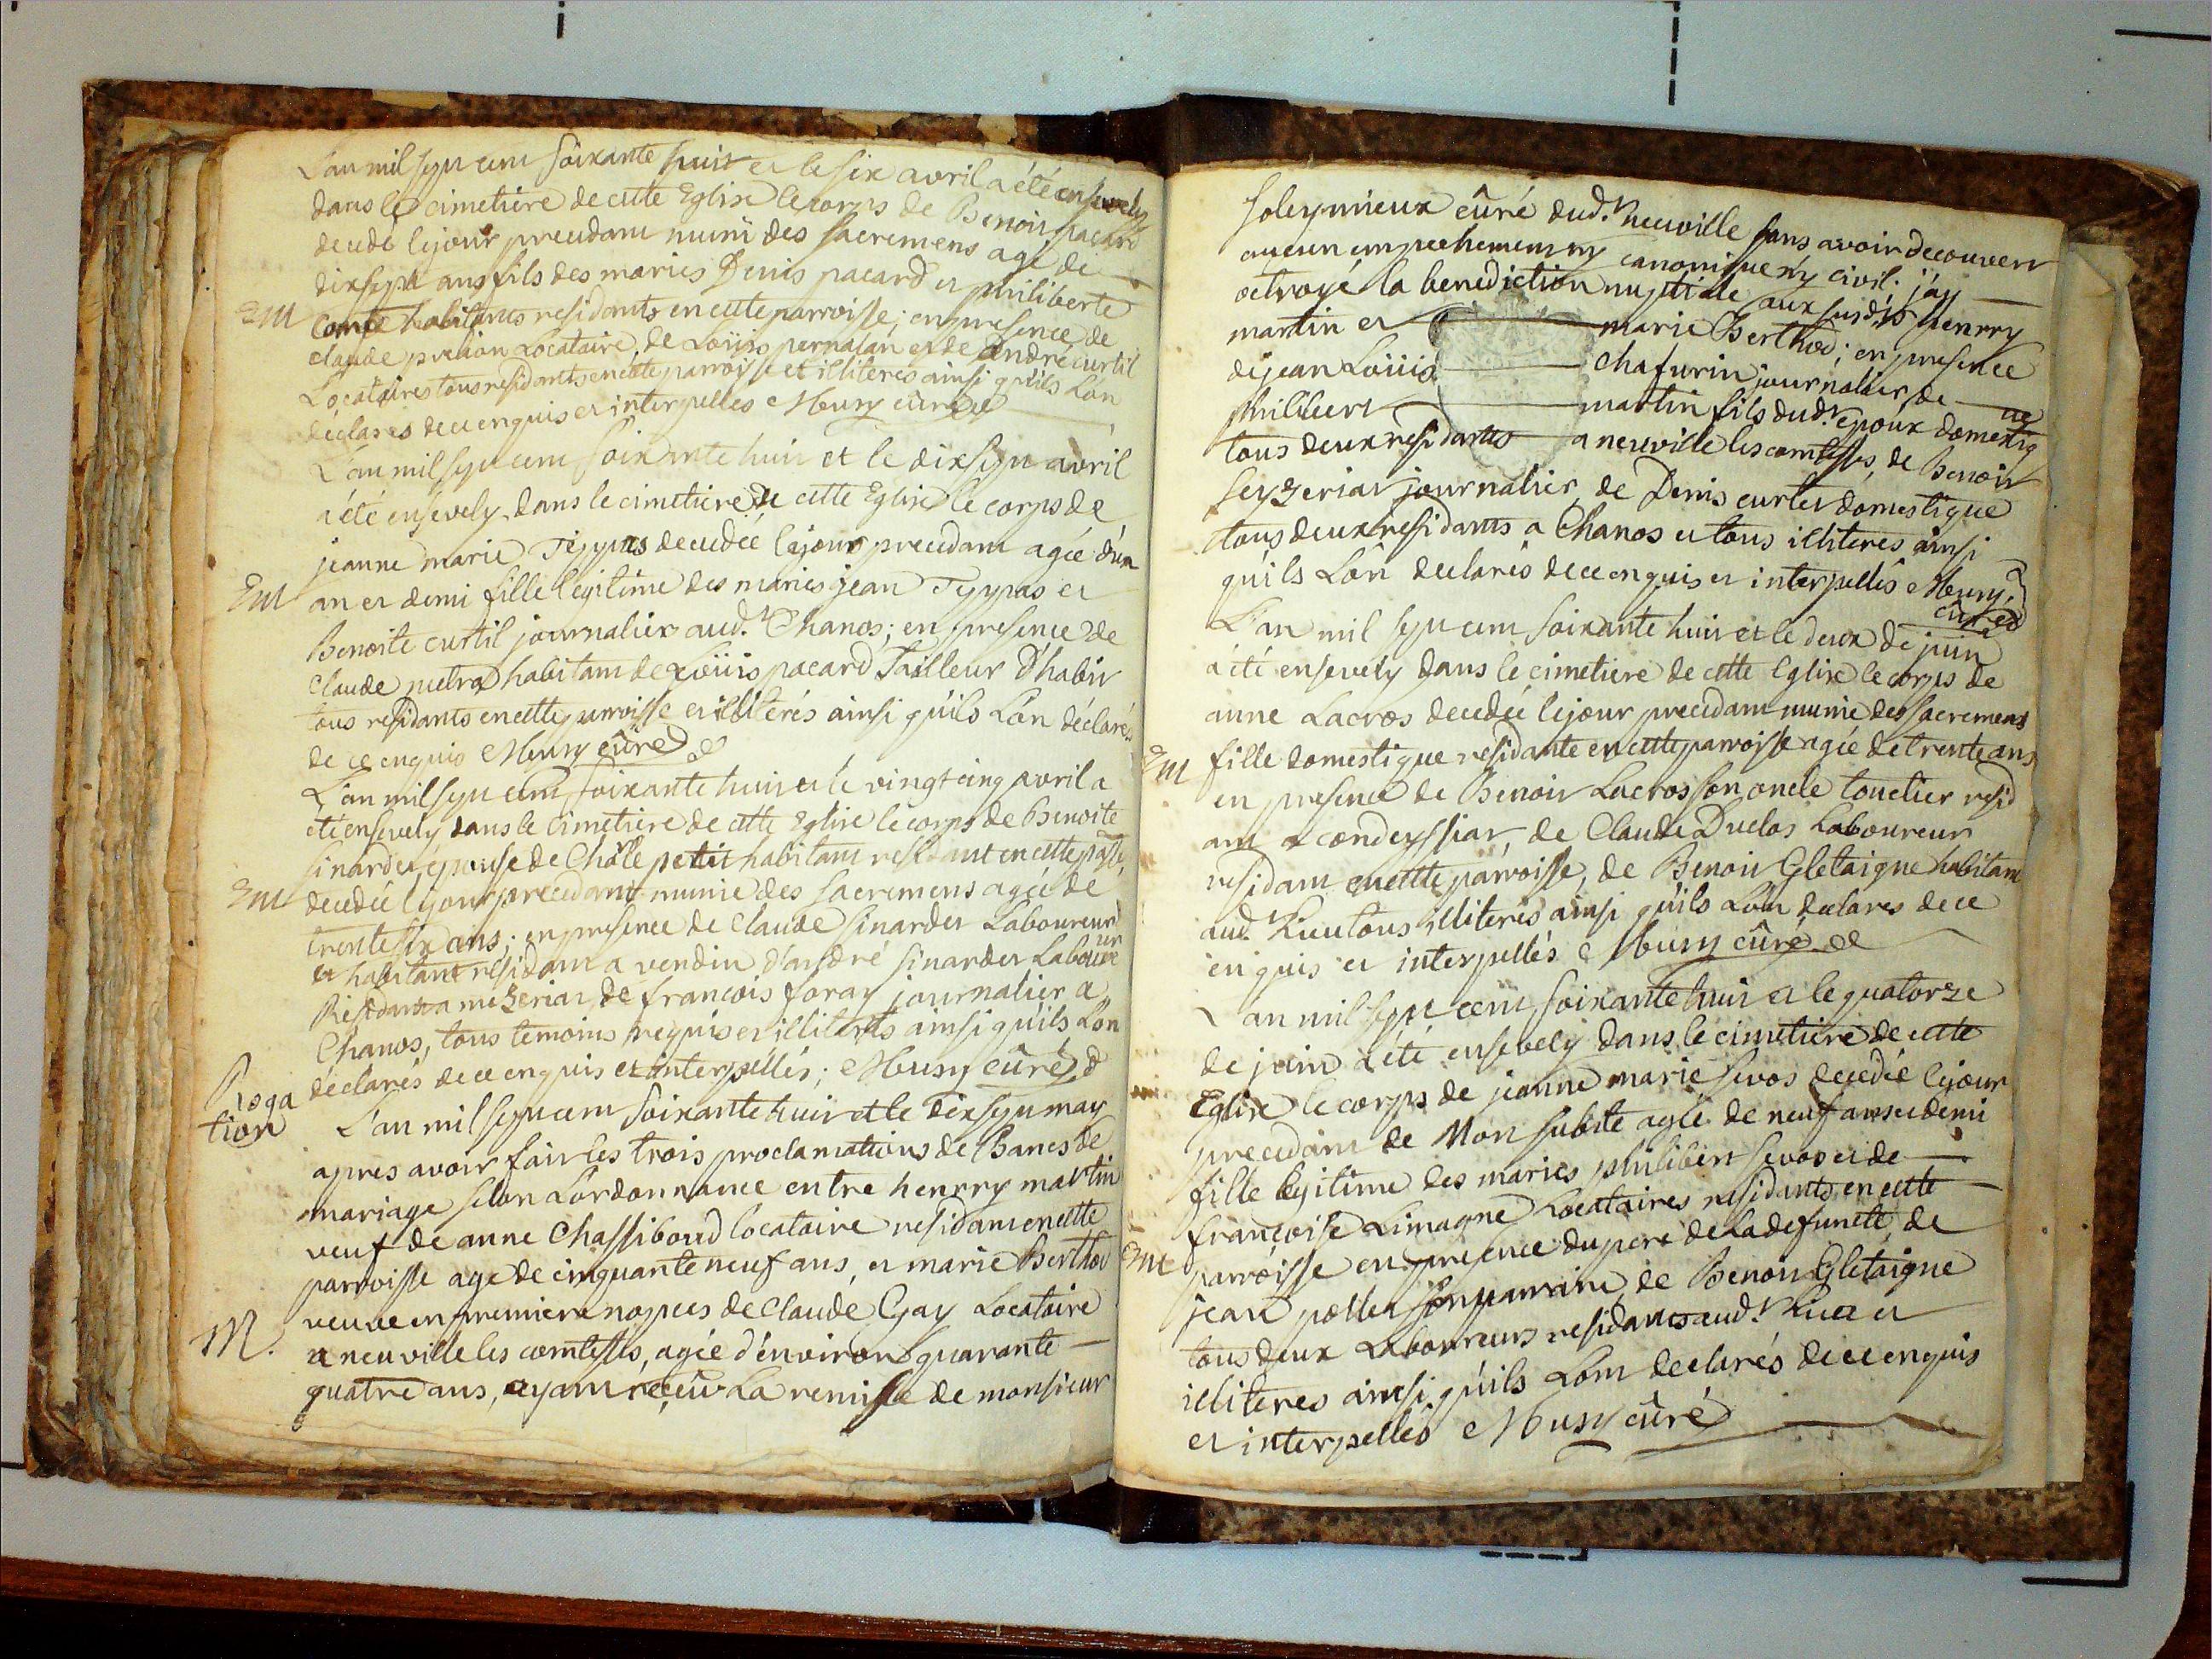 L'an mil sept cent soixante huit et le six avril a été ensevely
dans le cimetiere de cette Eglise le corps de Benoit pacard
decedé le jour precedant muni des sacremens agé de
dix sept ans fils des maries Denis pacard et philiberte
Em
Comte habitants residants en cette parroisse; en presence de
claude locataire, de Loüis pernatan et de André curtil
Locataires tous residants en cette parroisse et illiteres ainsi qu'ils L'on
déclarés de ce enquis et interpelles Musy curé
L'an mil sept cent soixante huit et le dix sept avril
a été ensevely dans le cimetiere de cette Eglise le corps de
jeanne marie Teppas decedée le jour precedant agée d'un
Em
an et demi fille legitime des maries jean Teppas et
Benoite curtil journalier aud.t Chanos; en presence de
Claude habitant de Loüis pacard Tailleur d'habit
tous residants en cette parroisse et illitérés ainsi qu'ils L'on déclarés
de ce enquis Musy cûré
L'an mil sept cent soixante huit et le vingt cinq avril a
été ensevely dans le cimetiere de cette Eglise le corps de Benoite
sinardet épouse de Chãle petit habitant residant en cette psse,
Em
decedée le jour precedant munie des sacremens agée de
trente six ans; en presence de claude sinardet Laboureur
et habitant residant a vendin d'andré sinardet Laboureur
Residant a mezeriat, de francois foray journalier a
Chanos, tous temoins requis et illiterés ainsi qu'ils L'on
déclarés de ce enquis et interpellés; Musy cûré
Roga
tion
L'an mil sept cent soixante huit et le dix sept may
apres avoir fait les trois proclamations de Bancs de
mariage selon L'ordonnance entre henrry martin
veuf de anne Chassiboud locataire residant en cette
parroisse agé de cinquante neuf ans, et marie Berthod
veuve en premiere nopces de Claude Gay Locataire
M.
a neuville les comtesses, agée d'environ quarante
quatre ans, ayant reçeu La remisse de monsieur
soleymieux cûré dud.t neuville sans avoir decouvert
aucun empechement ny canonique n'y civil; j'ay
octroyé la benediction nuptiale aux susd.ts henrry
martin et marie Berthod; en presence
de jean Loüis chafurin journalier, de
philibert martin fils dud.t époux domestique
tous deux residants a neuville les comtesses, de Benoit
seyzeriat journalier, de Denis curtet domestique
tous deux residants a Chanos et tous illiteres ainsi
qu'ils L'on declarés de ce enquis et interpellés Musy,
cûré
L'an mil sept cent soixante huit et le deux de juin
a été ensevely dans le cimetiere de cette Eglise le corps de
anne Lacros decedée le jour precedant munie des sacremens
Em
fille domestique residante en cette parroisse agée de trente ans
en presence de Benoit Lacros son oncle resid
ant a condeyssiat, de Claude Duclos Laboureur
residant en cette parroisse, de Benoit Gletaigne habitant
aud.t Lieu tous illiteres ainsi qu'ils L'on declares de ce
enquis et interpellés Musy cûré
L'an mil sept cent soixante huit et le quatorze
de juin a été ensevely dans le cimetiere de cette
Eglise le corps de jeanne marie sevos decedée le jour
precedant de Mort subite agée de neuf ans et demi
fille legitime des maries philibert sevos et de
françoise Limagne Locataires residants en cette
Em
parroisse en presence du pere de la defuncte, de
jean son parrain, de Benoit Gletaigne
tous deux Laboureurs residants aud.t Lieu et
illiteres ainsi qu'ils L'ont declarés de ce enquis
et interpellés Musy cûré